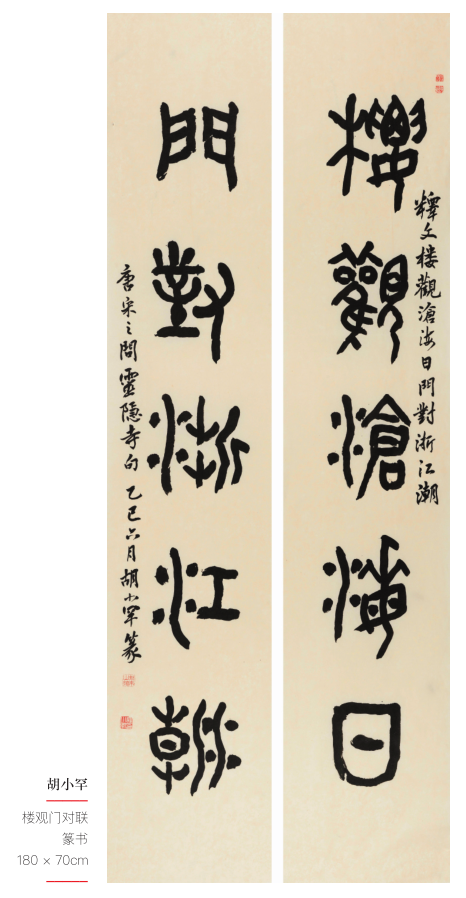 樓觀滄海日
釋文楼觀滄海日門對浙江潮
門對浙江潮
唐宋之問靈隐寺句乙巳六月胡小罕篆
胡小罕
楼观门对联
篆书
180 × 70cm